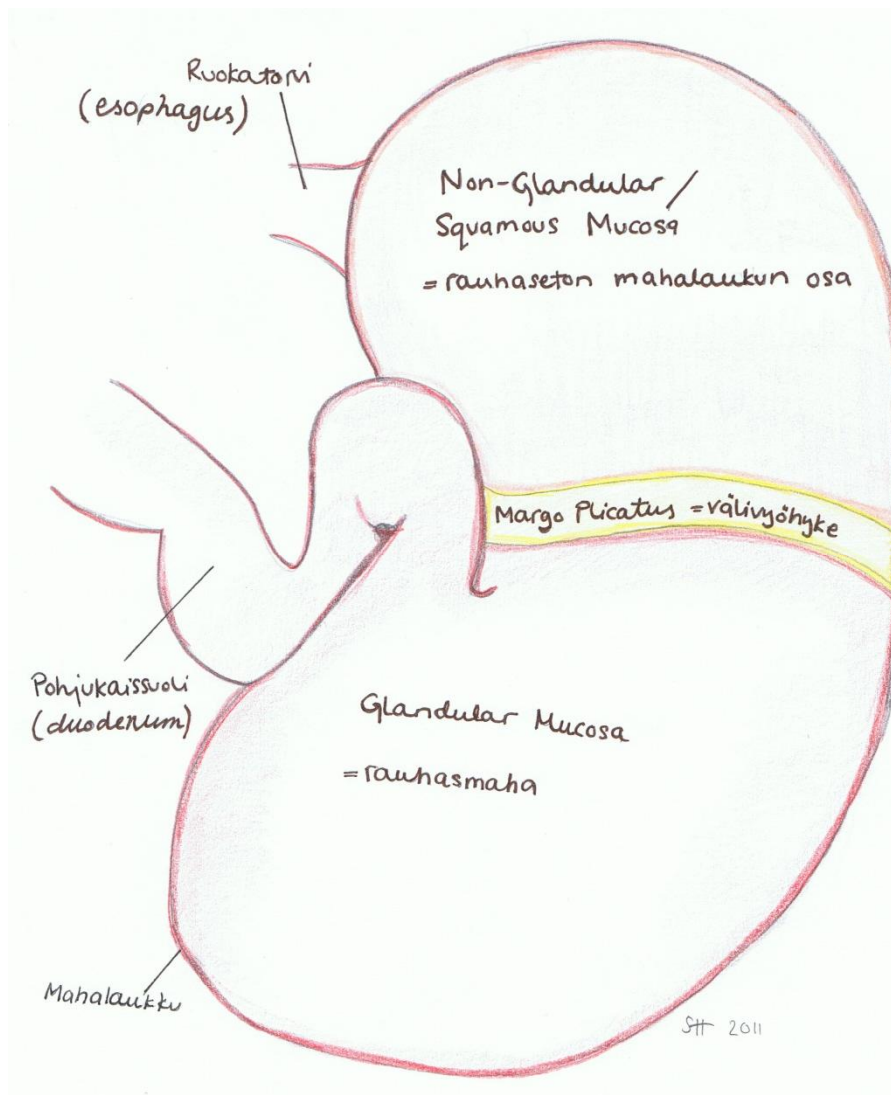 Ruokatorvi
(esophagus)
Non-Glandular /
Squamous Mucosa
= rauhaseton mahalaukun osa
Margo Plicatus = välivyöhyke
Pohjukaissuoli
(duodenum)
Glandular Mucosa
= rauhasmaha
Mahalaukku
SH 2011